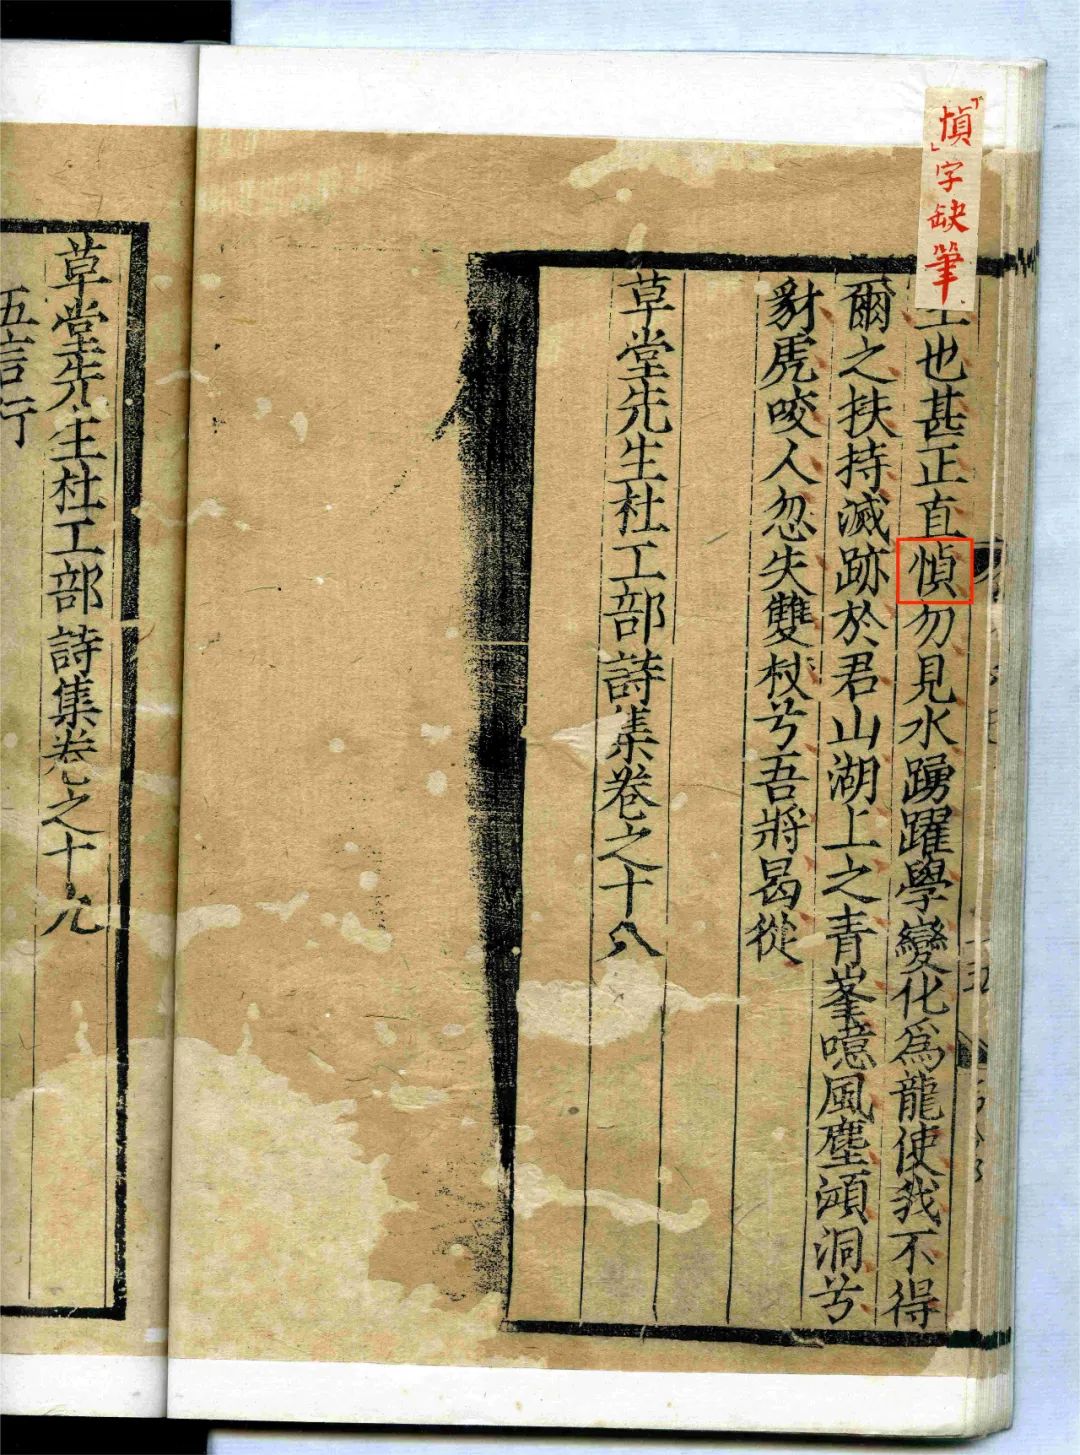 「慎」字缺筆
生也甚正直慎勿見水踴躍學變化爲龍使我不得
爾之扶持滅跡於君山湖上之青峯噫風塵澒洞兮
豺虎咬人忽失雙杖兮吾將曷從
草堂先生杜工部詩集卷之十八
草堂先生杜工部詩集卷之十九
五言行